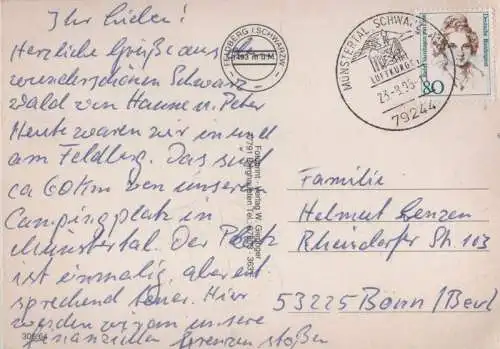 Ihr Lieben!
Herzliche Grüße aus dem
wunderschönen Schwarz
wald von Hanne u. Peter
Heute waren wir in und
am Feldberg. Das sind
ca 60 Km von unserem
Campingplatz in
Münstertal. Der Platz
ist einmalig, aber ent
sprechend teuer. Hier
werden wir an unsere
finanziellen Grenzen stoßen
308/64
FELDBERG (SCHWARZW.)
1493 m ü.M.
Fotoprint - Verlag W.
MÜNSTERTAL, SCHWARZW
LUFTKURORT
79244
Deutsche Bundespost
80
Familie
Helmut Lenzen
Rheindorfer Str. 103
53225 Bonn/Beuel